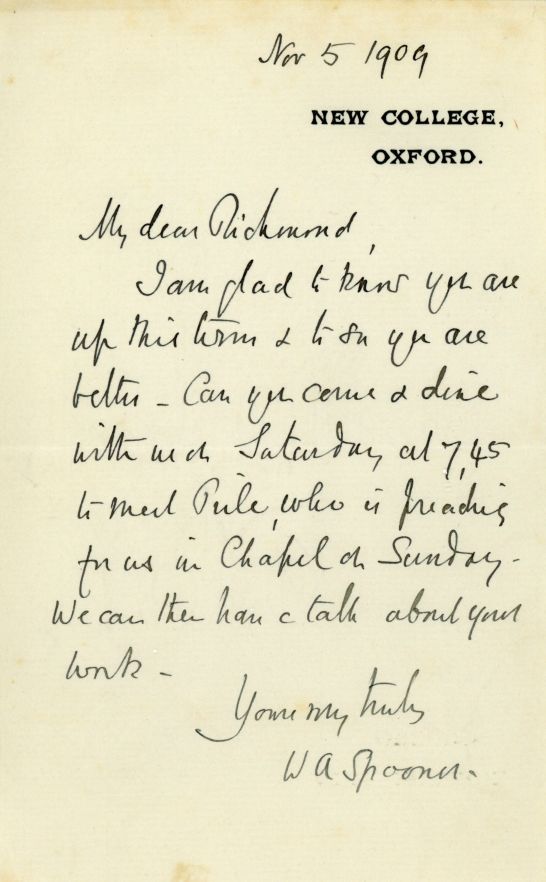 Nov 5 1909
NEW COLLEGE,
OXFORD.
My dear Richmond,
I am glad to know you are
up this term & to see you are
better - Can you come & dine
with us on Saturday at 7,45
to meet who is preaching
for us in Chapel on Sunday -
We can then have a talk about your
work -
Yours very truly
W A Spooner.